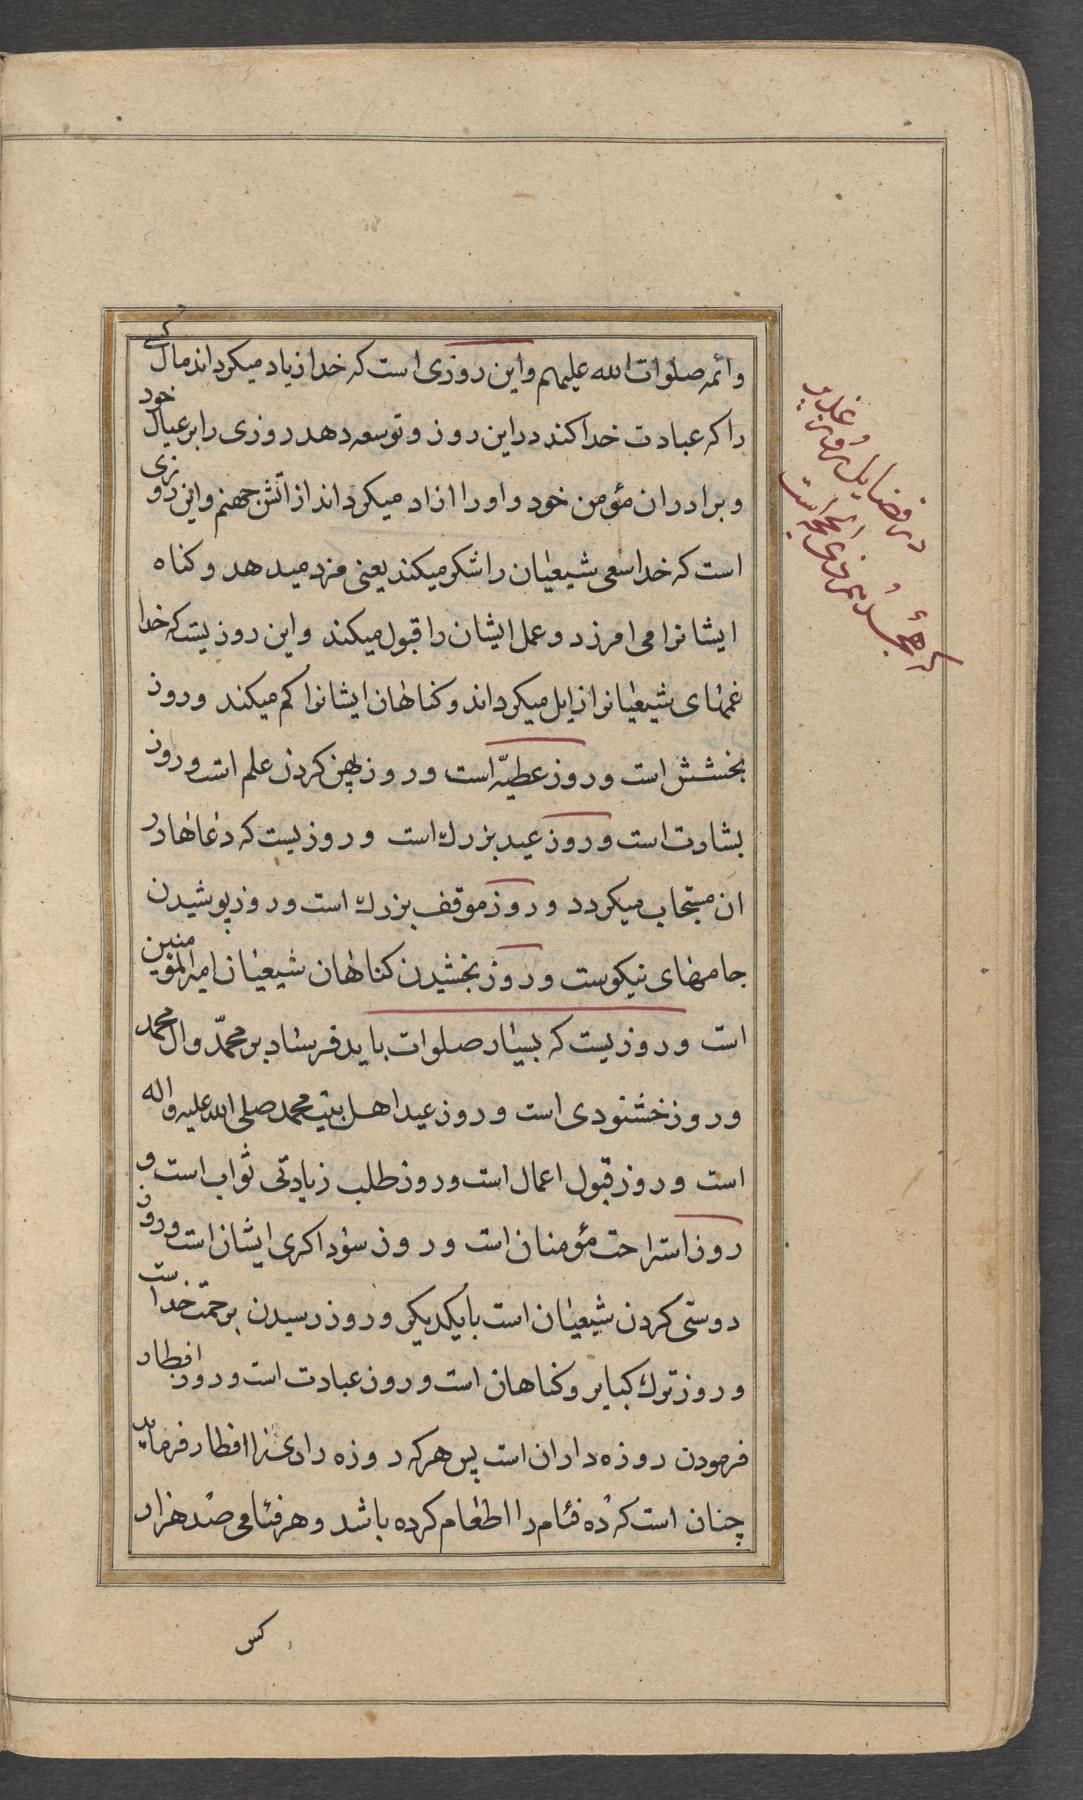 وائمه صلوات الله علیهم واین روزی است که خدا زیاد میکرداند مال کسی
را که عبادت خدا کند دراین روز و توسعه دهد روزی را بر عیال خود
و برادران مؤمن خود و اورا ازاد میکرداند از اتش جهنم واین روزی
است که خدا سعی شیعیان را شکر میکند یعنی مزد میدهد و کناه
ایشانرا می امرزد و عمل ایشان را قبول میکند واین روزیست که خدا
غمهای شیعیانرا زایل میکرداند و کناهان ایشانرا کم میکند وروز
بخشش است وروز عطیّه است وروز پهن کردن علم است وروز
بشارت است وروز عید بزرك است وروزیست که دعاها در
ان مستجاب میکردد وروز موقف بزرك است وروز پوشیدن
جامهای نیکوست وروز بخشیدن کناهان شیعیان امیرالمؤمنین
است وروزیست که بسیار صلوات باید فرستاد بر محمّد وال محمد
وروز خشنودی است وروز عید اهل بیت محمد صلی الله علیه واله
است وروز قبول اعمال است وروز طلب زیادتی ثواب است و
روز استراحت مؤمنان است وروز سوداکری ایشان است وروز
دوستی کردن شیعیان است با یکدیکر وروز رسیدن برحمت خداست
وروز ترك کبایر و کناهان است وروز عبادت است وروز افطار
فرمودن روزه داران است پس هر که روزه داری را افطار فرماید
چنان است که ده فئام را اطعام کرده باشد و هر فئامی صد هزار
کس
در فضایل روز غدیر
که هجدهم ذی الحجه است